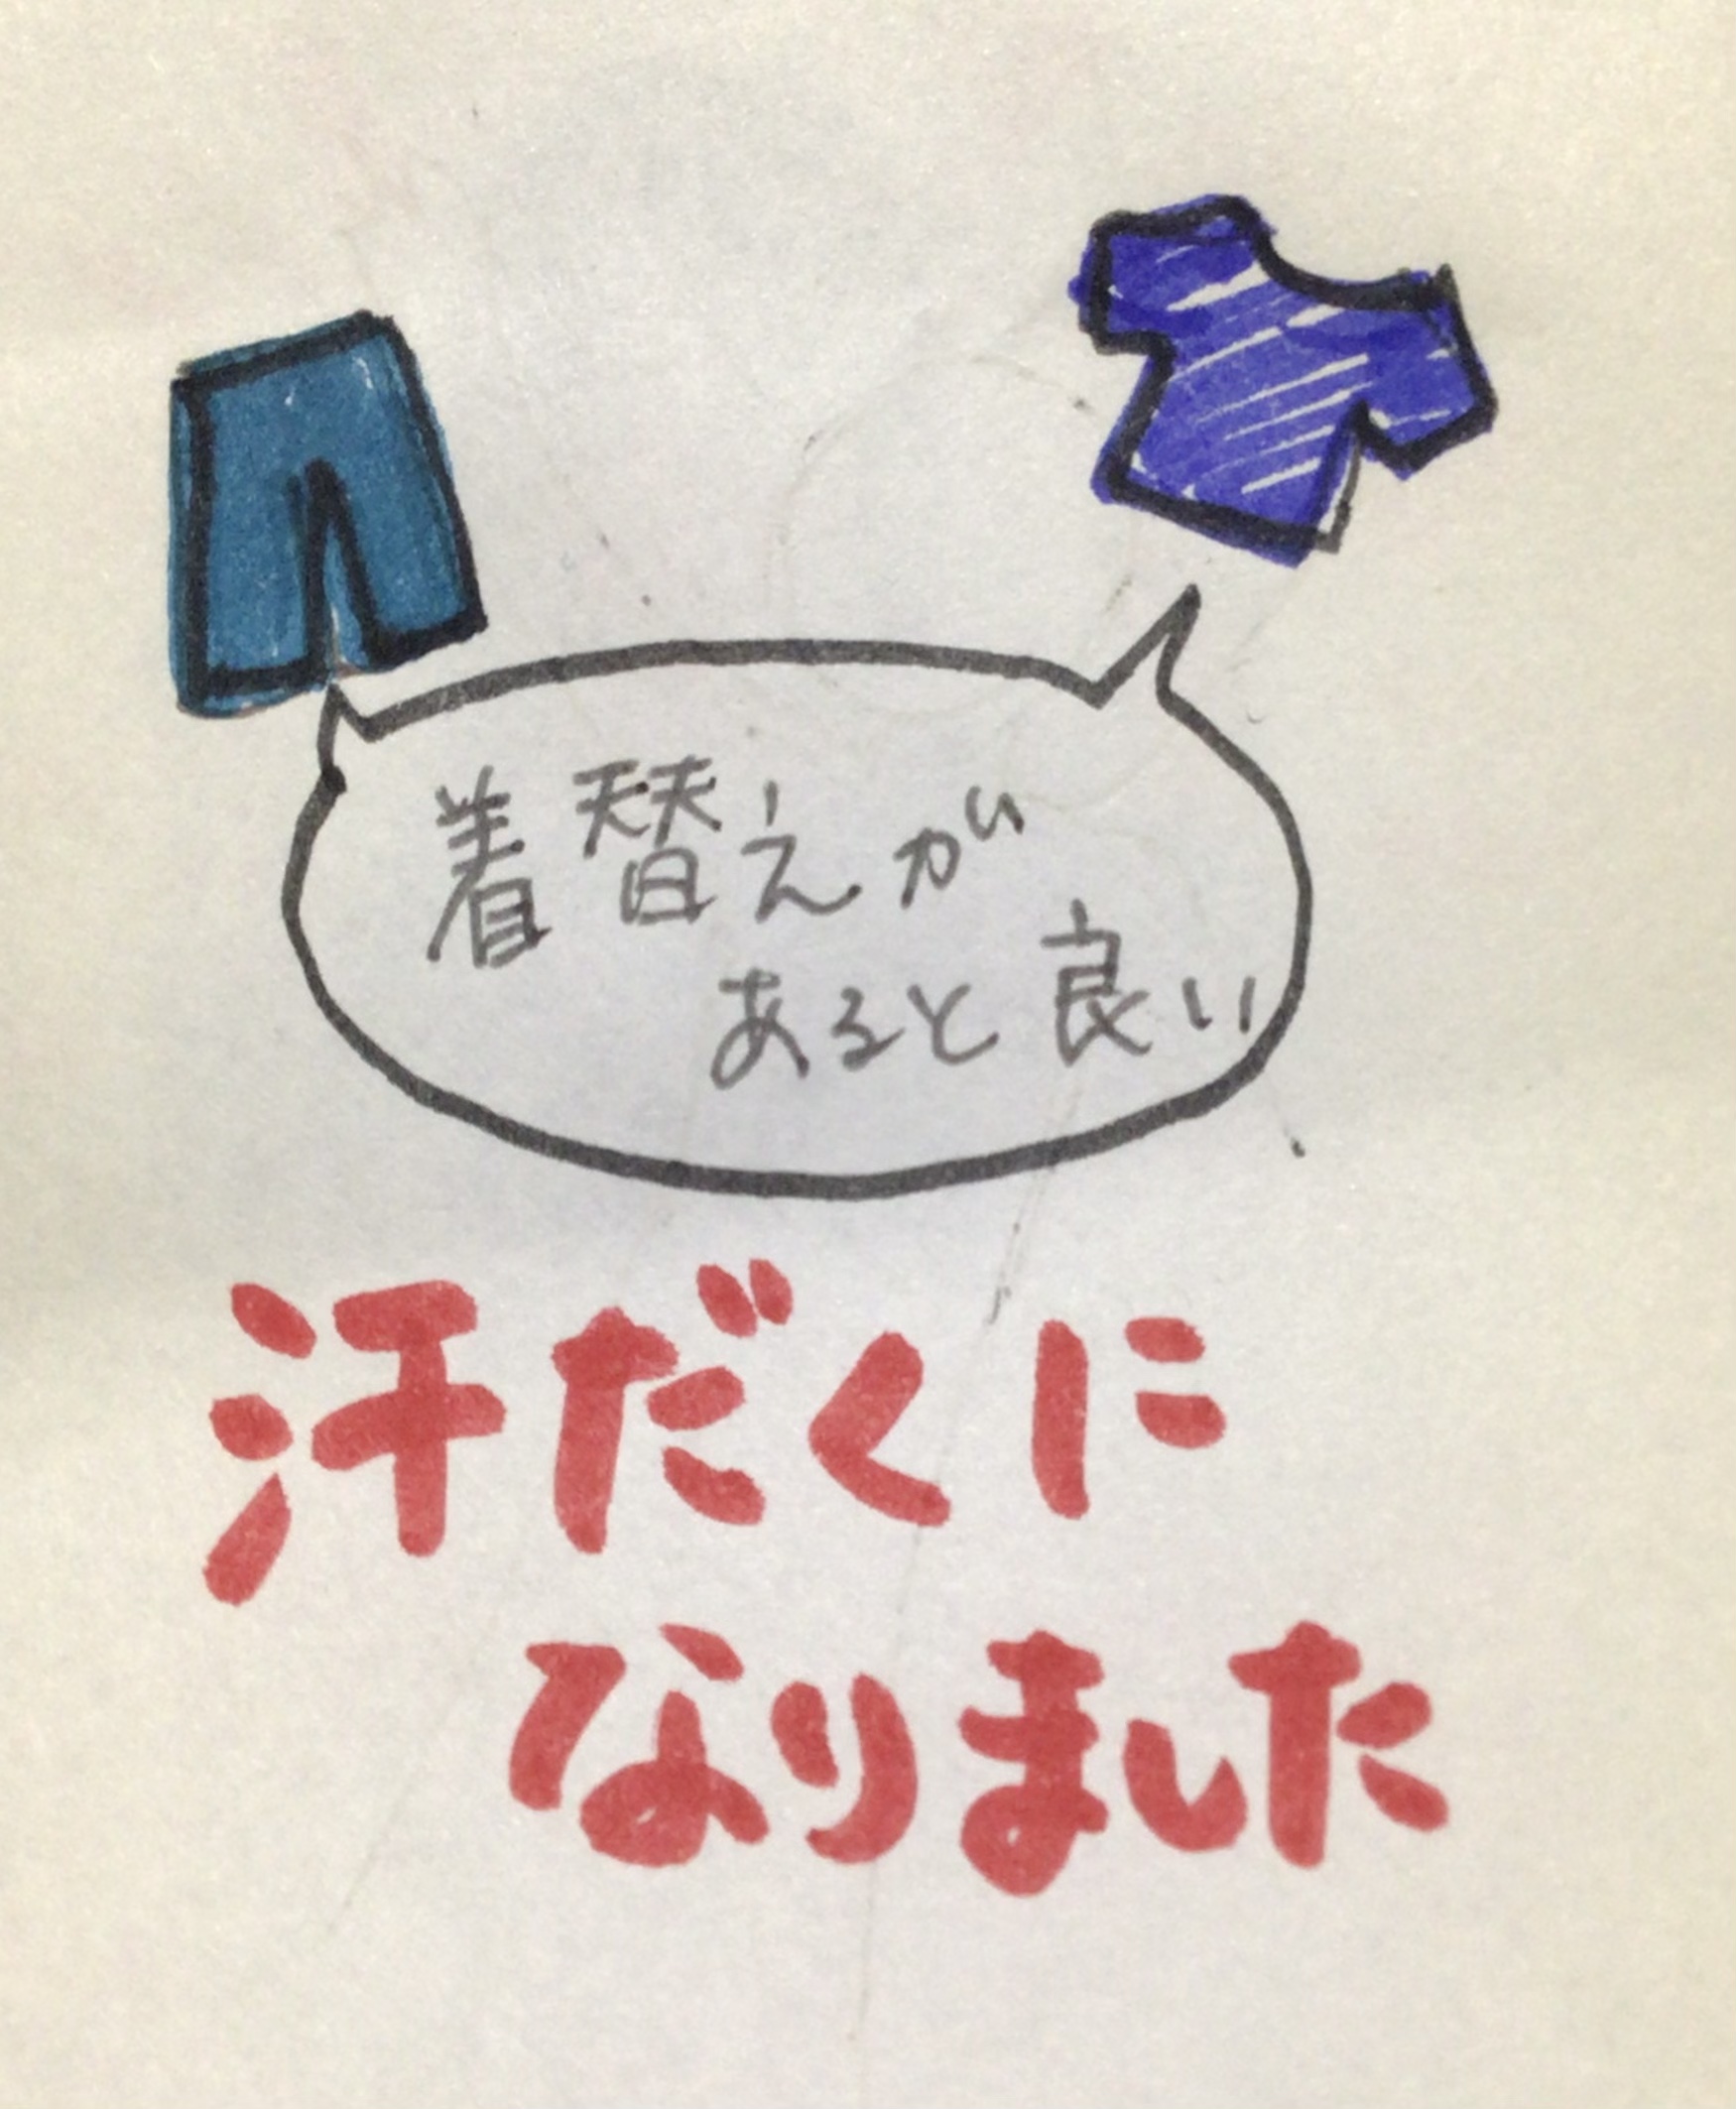 着替えが
あると良い
汗だくに
なりました